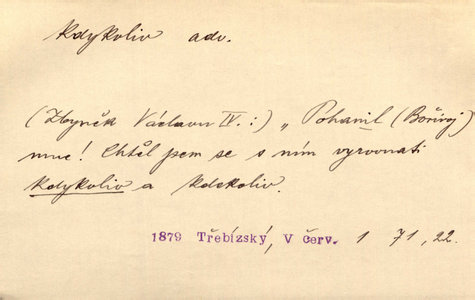 kdykoliv adv.
(Zbyněk Václavu IV.:) „Pohanil (Bořivoj)
mne! Chtěl jsem se s ním vyrovnati
kdykoliv a kdekoliv.
1879 Třebízský, V červ. 1 71, 22.